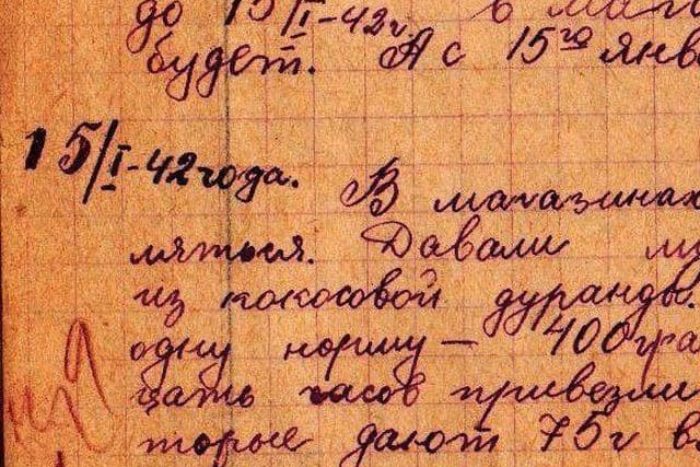 до 15/I-42г. в мага
будет. А с 15го янв
15/I-42года. В магазинах
ляться. Давали
из кокосовой дуранды
одну норму — 400гра
цать часов привезли
торые дают 75г в